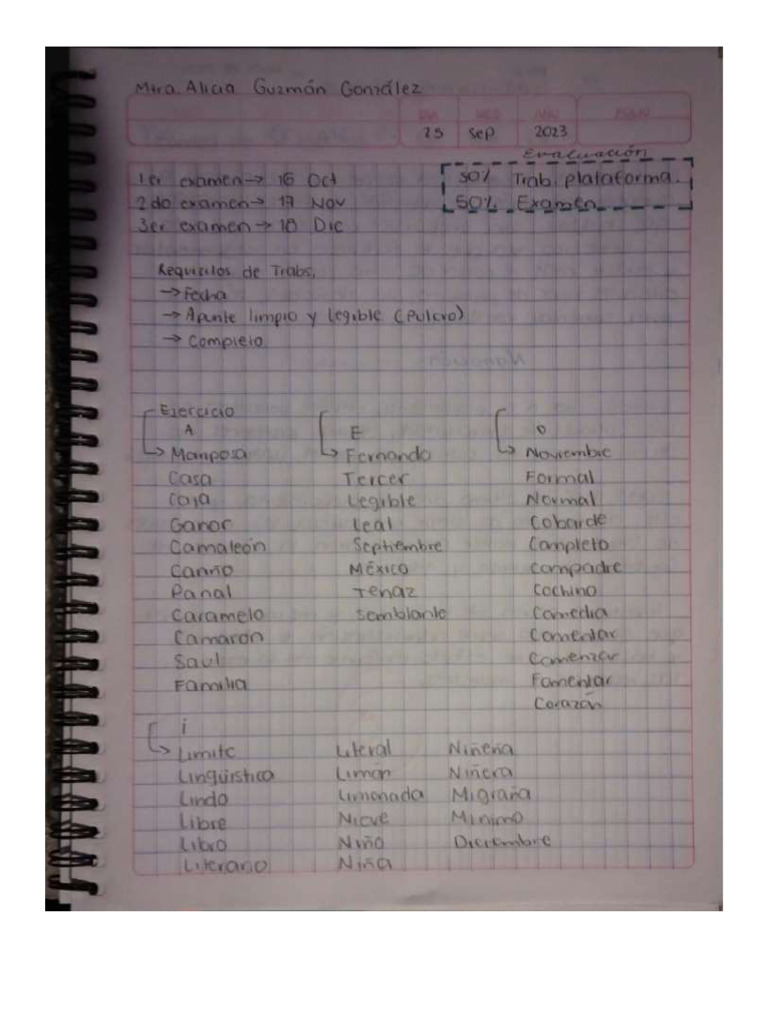 Mtra. Alicia Guzmán González
25 Sep 2023
Evaluación
1er examen → 16 Oct
50% Trab. plataforma.
2do examen → 17 Nov
50% Examen
3er examen → 18 Dic
Requisitos de Trabs.
→ Fecha
→ Apunte limpio y legible (Pulcro)
→ Completo
Ejercicio
A E O
Mariposa Fernando Noviembre
Casa Tercer Formal
Caja Legible Normal
Ganar Leal Cobarde
Camaleón Septiembre Completo
Cariño México Compadre
Panal Tenaz Cochino
Caramelo Semblante Comedia
Camarón Comentar
Saul Comenzar
Familia Fomentar
Corazón
i
Limite Literal Niñeria
Lingüistica Limón Niñera
Lindo Limonada Migraña
Libre Nieve Minimo
Libro Niño Diciembre
Literario Niña